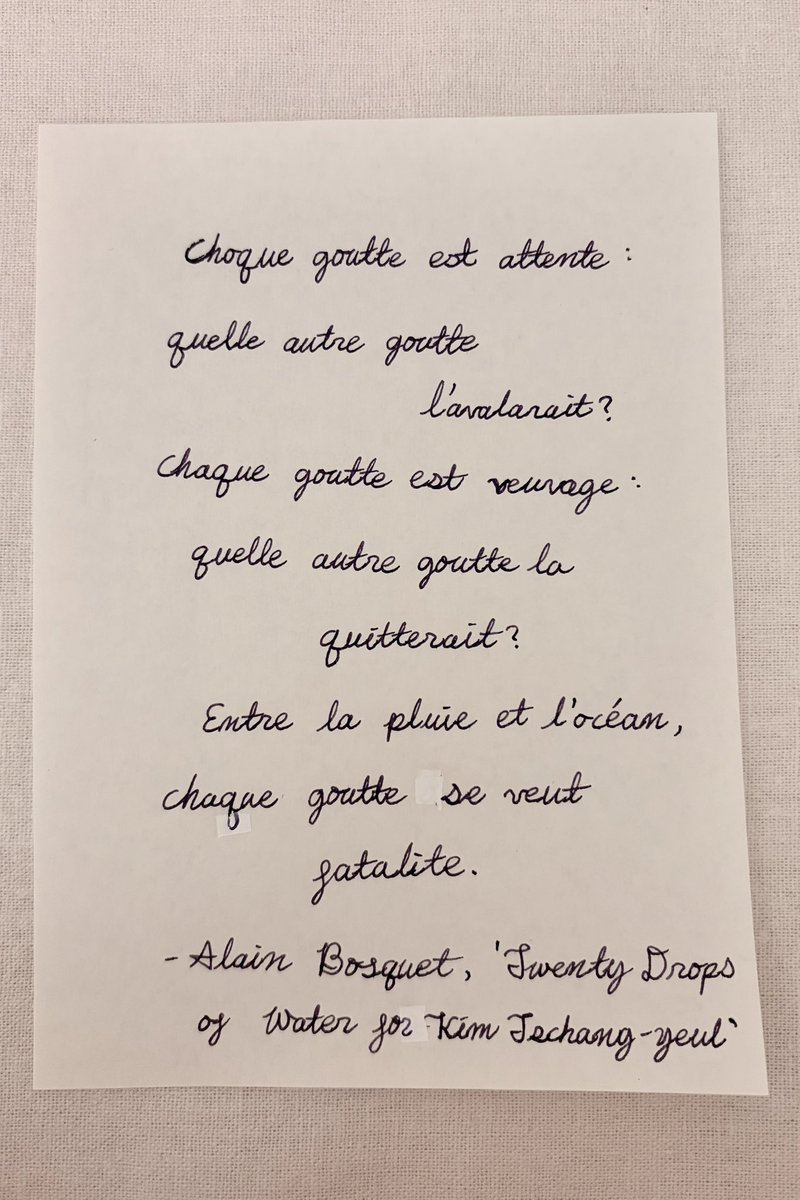 Choque goutte est attente :
quelle autre goutte
l'avalarait?
Chaque goutte est veuvage :
quelle autre goutte la
quitterait?
Entre la pluie et l'océan,
chaque goutte se veut
fatalite.
- Alain Bosquet, 'Twenty Drops
of Water for Kim Tschang-yeul'